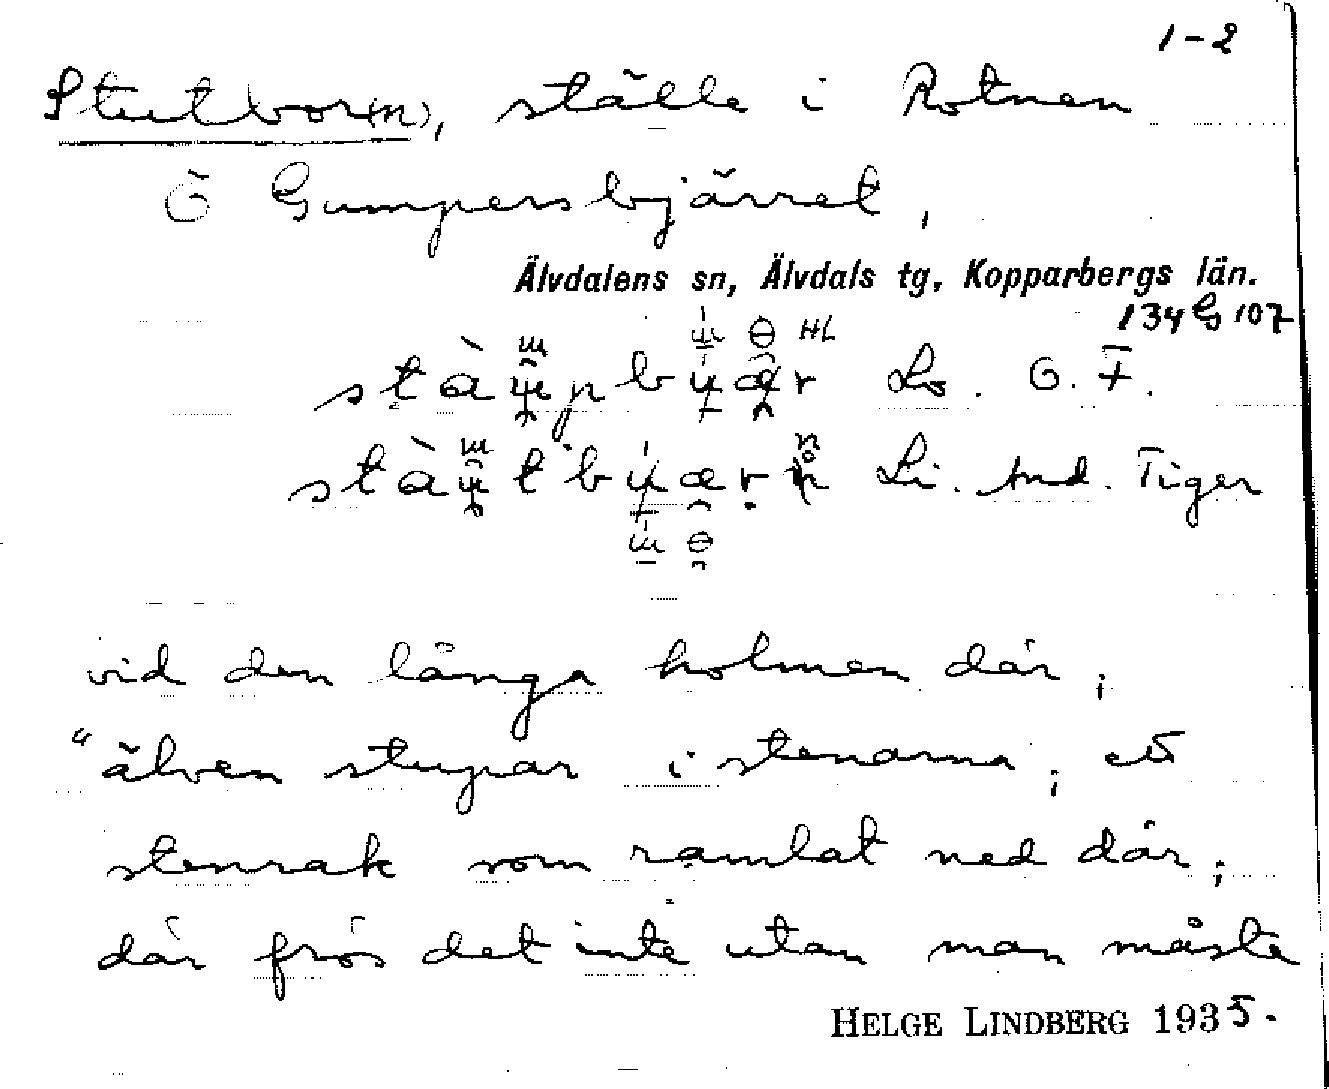 1-2
Stutbor(n), ställe i Rotnen
Ö Gumpersbjärret,
Älvdalens sn, Älvdals tg, Kopparbergs län.
134 G 107
HL
Lo. O. F.
Li. And. Tiger
vid den långa holmen där;
"älven stupar i stenarna; ett
stenrak som ramlat ned där;
där frös det inte utan man måste
HELGE LINDBERG 1935.